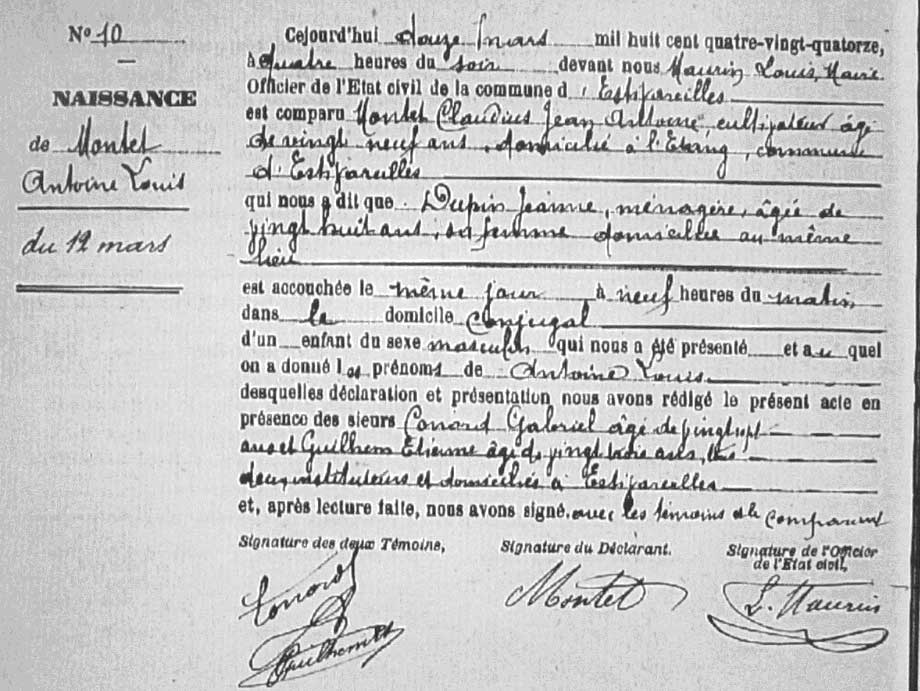 N° 10
NAISSANCE
de Montet
Antoine Louis
du 12 mars
Cejourd'hui douze mars mil huit cent quatre-vingt-quatorze,
à quatre heures du soir devant nous Maurin Louis, Maire
Officier de l'Etat civil de la commune d'Estivareilles
est comparu Montet Claudius Jean Antoine, cultivateur âgé
de vingt neuf ans, domicilié à l'Etang, commune
d'Estivareilles
qui nous a dit que Dupin Jeanne, ménagère, âgée de
vingt huit ans, sa femme domiciliée au même
lieu
est accouchée le même jour à neuf heures du matin
dans le domicile conjugal
d'un enfant du sexe masculin qui nous a été présenté et au quel
on a donué les prénoms de Antoine Louis
desquelles déclaration et présentation nous avons rédigé le présent acte en
présence des sieurs Conord Gabriel âgé de vingt sept
ans et Guilhem Etienne âgé de vingt trois ans, tous
deux instituteurs et domiciliés à Estivareilles
et, après lecture faite, nous avons signé. avec les témoins et le comparant
Signature des deux Témoins,
Signature du Déclarant.
Signature de l'Officier
de l'Etat civil,
Conord
Guilhem
Montet
L. Maurin